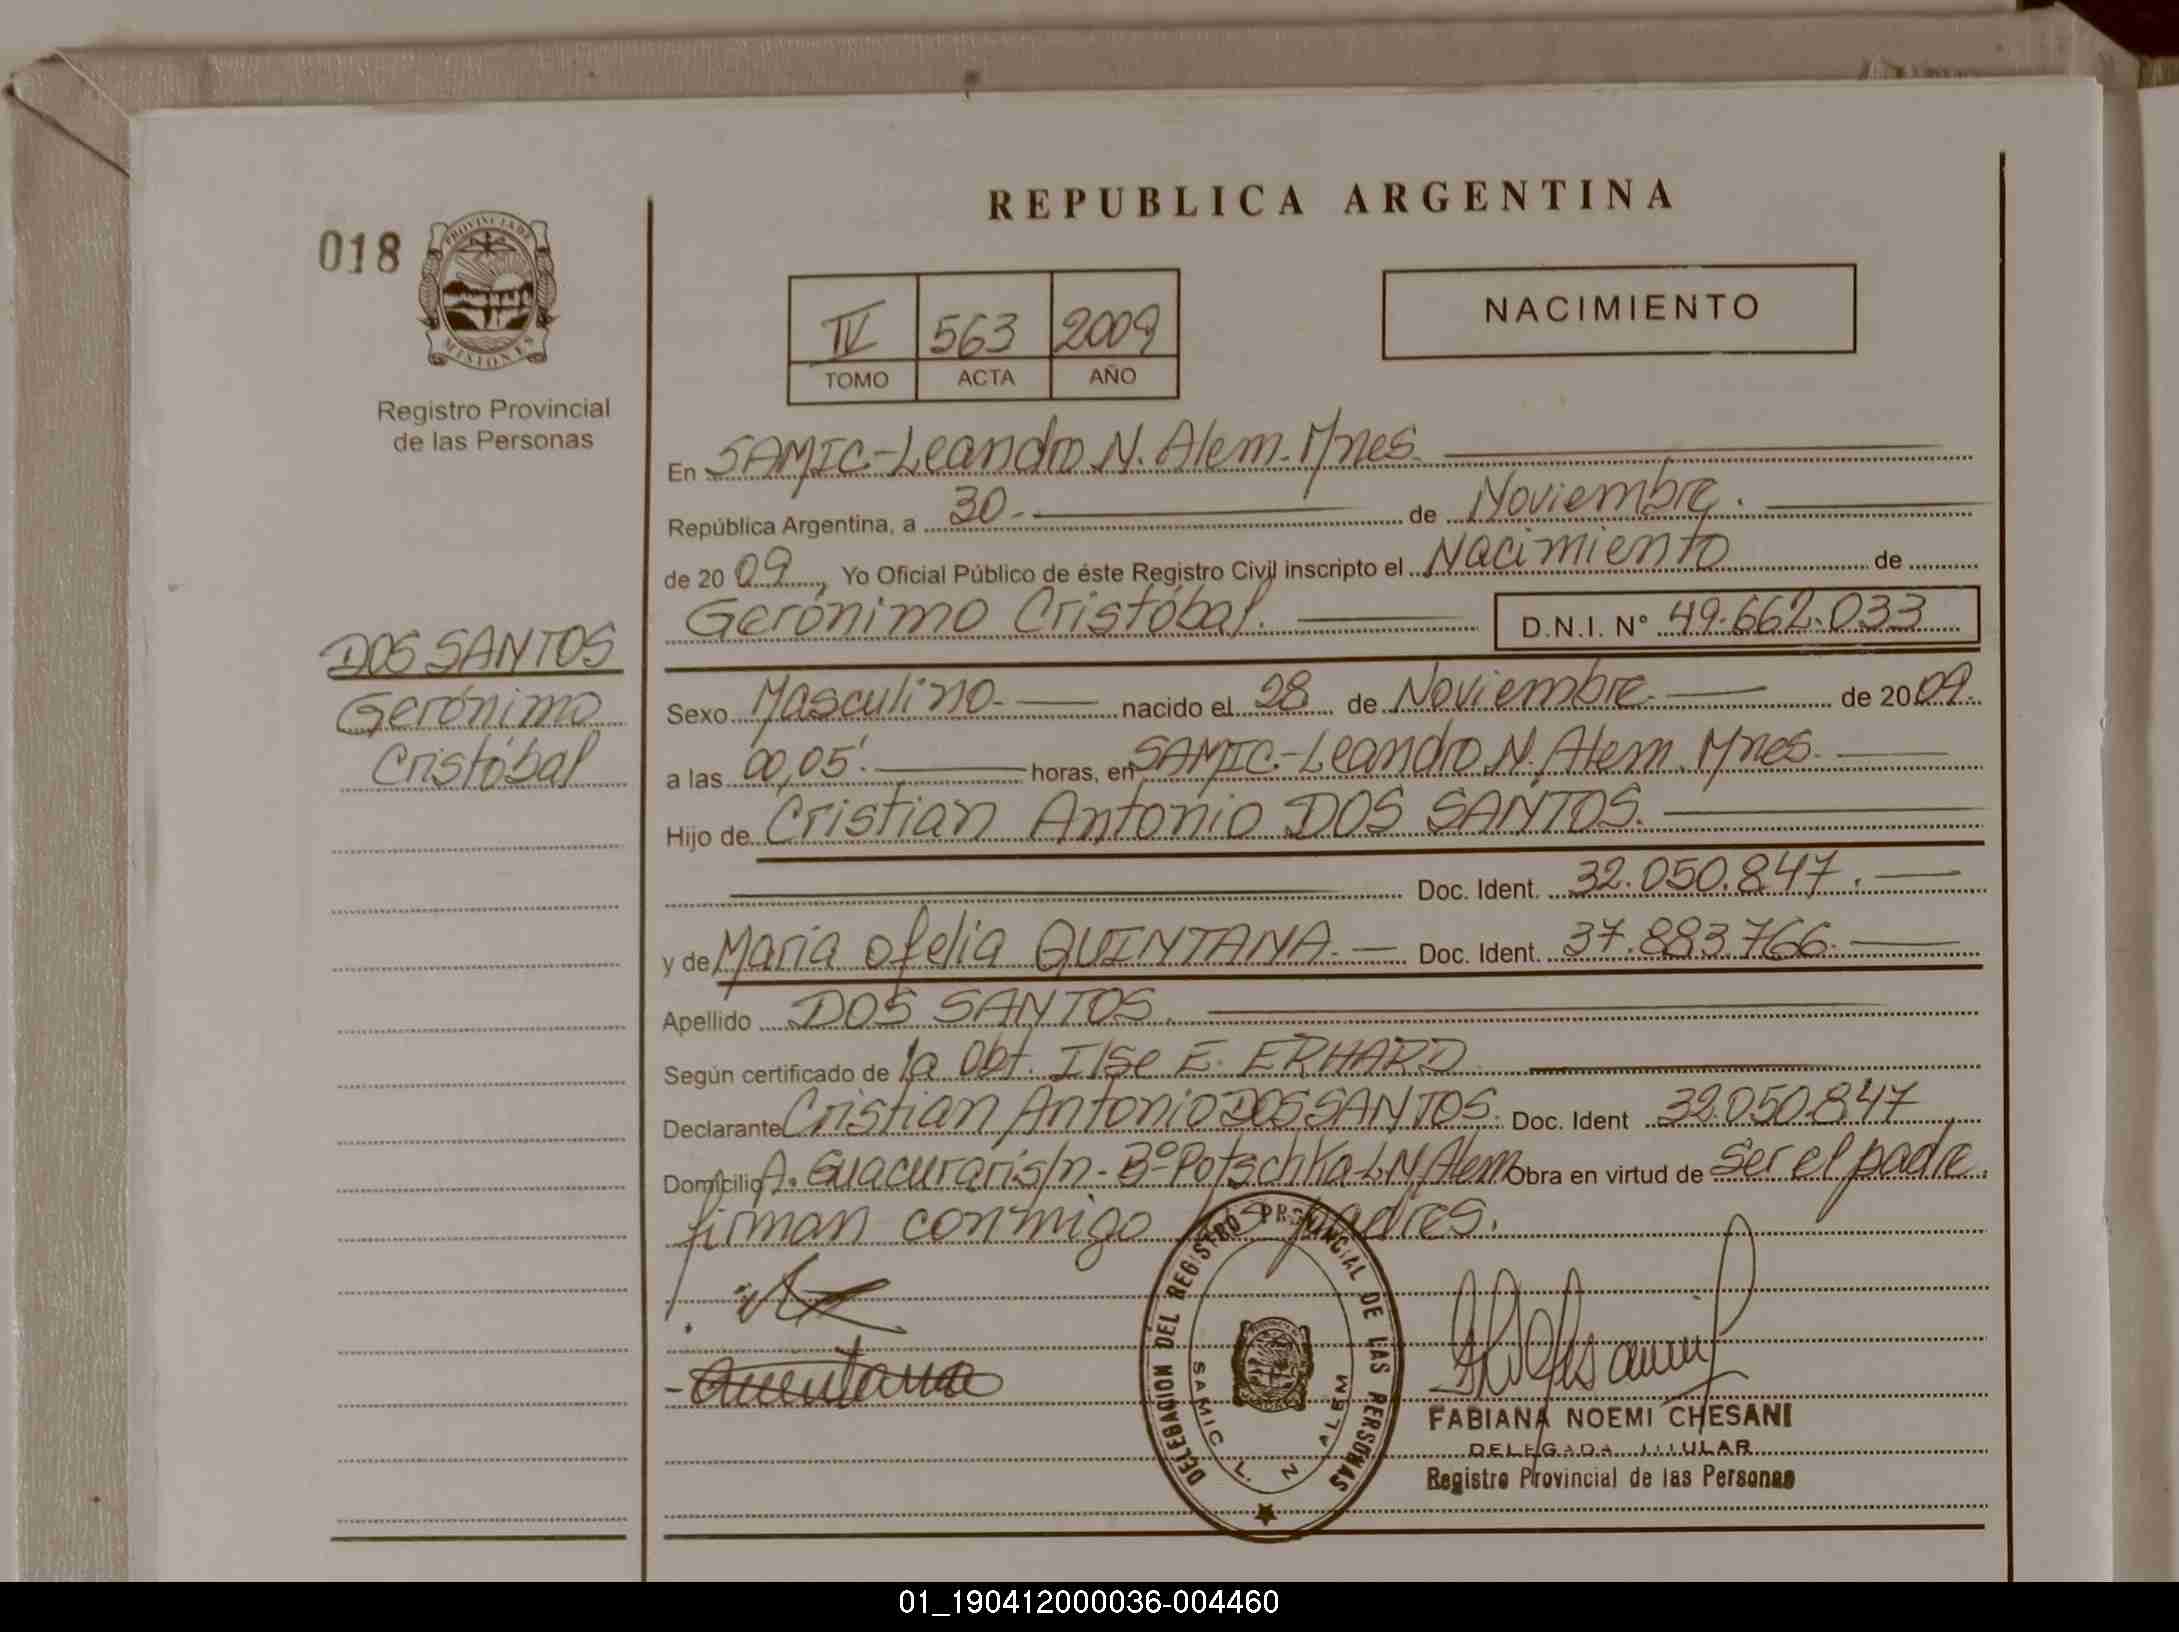 REPUBLICA ARGENTINA
018
PROVINCIA DE
MISIONES
Registro Provincial
de las Personas
IV 563 2009
TOMO ACTA AÑO
NACIMIENTO
En SAMIC.-Leandro N. Alem. Mnes.
República Argentina, a 30.- de Noviembre.
de 20 09, Yo Oficial Público de éste Registro Civil inscripto el Nacimiento de
Gerónimo Cristóbal. D.N.I. N° 49.662.033
DOS SANTOS
Gerónimo
Cristóbal
Sexo Masculino.- nacido el 28 de Noviembre.- de 20 09.
a las 00,05'. horas, en SAMIC.-Leandro N. Alem. Mnes.
Hijo de Cristian Antonio DOS SANTOS.
Doc. Ident. 32.050.847.
y de María Ofelia QUINTANA.- Doc. Ident. 37.883.766.
Apellido DOS SANTOS.
Según certificado de la Obt. Ilse E. ERHARD
Declarante Cristian Antonio DOS SANTOS. Doc. Ident 32.050.847
Domicilio A. Guacurarí s/n.- Bº Potschka L.N. Alem Obra en virtud de ser el padre.
firman conmigo los padres.
DELEGACION DEL REGISTRO PROVINCIAL DE LAS PERSONAS
SAMIC L. N ALEM
Quintana
FABIANA NOEMI CHESANI
DELEGADA TITULAR
Registro Provincial de las Personas
01_190412000036-004460